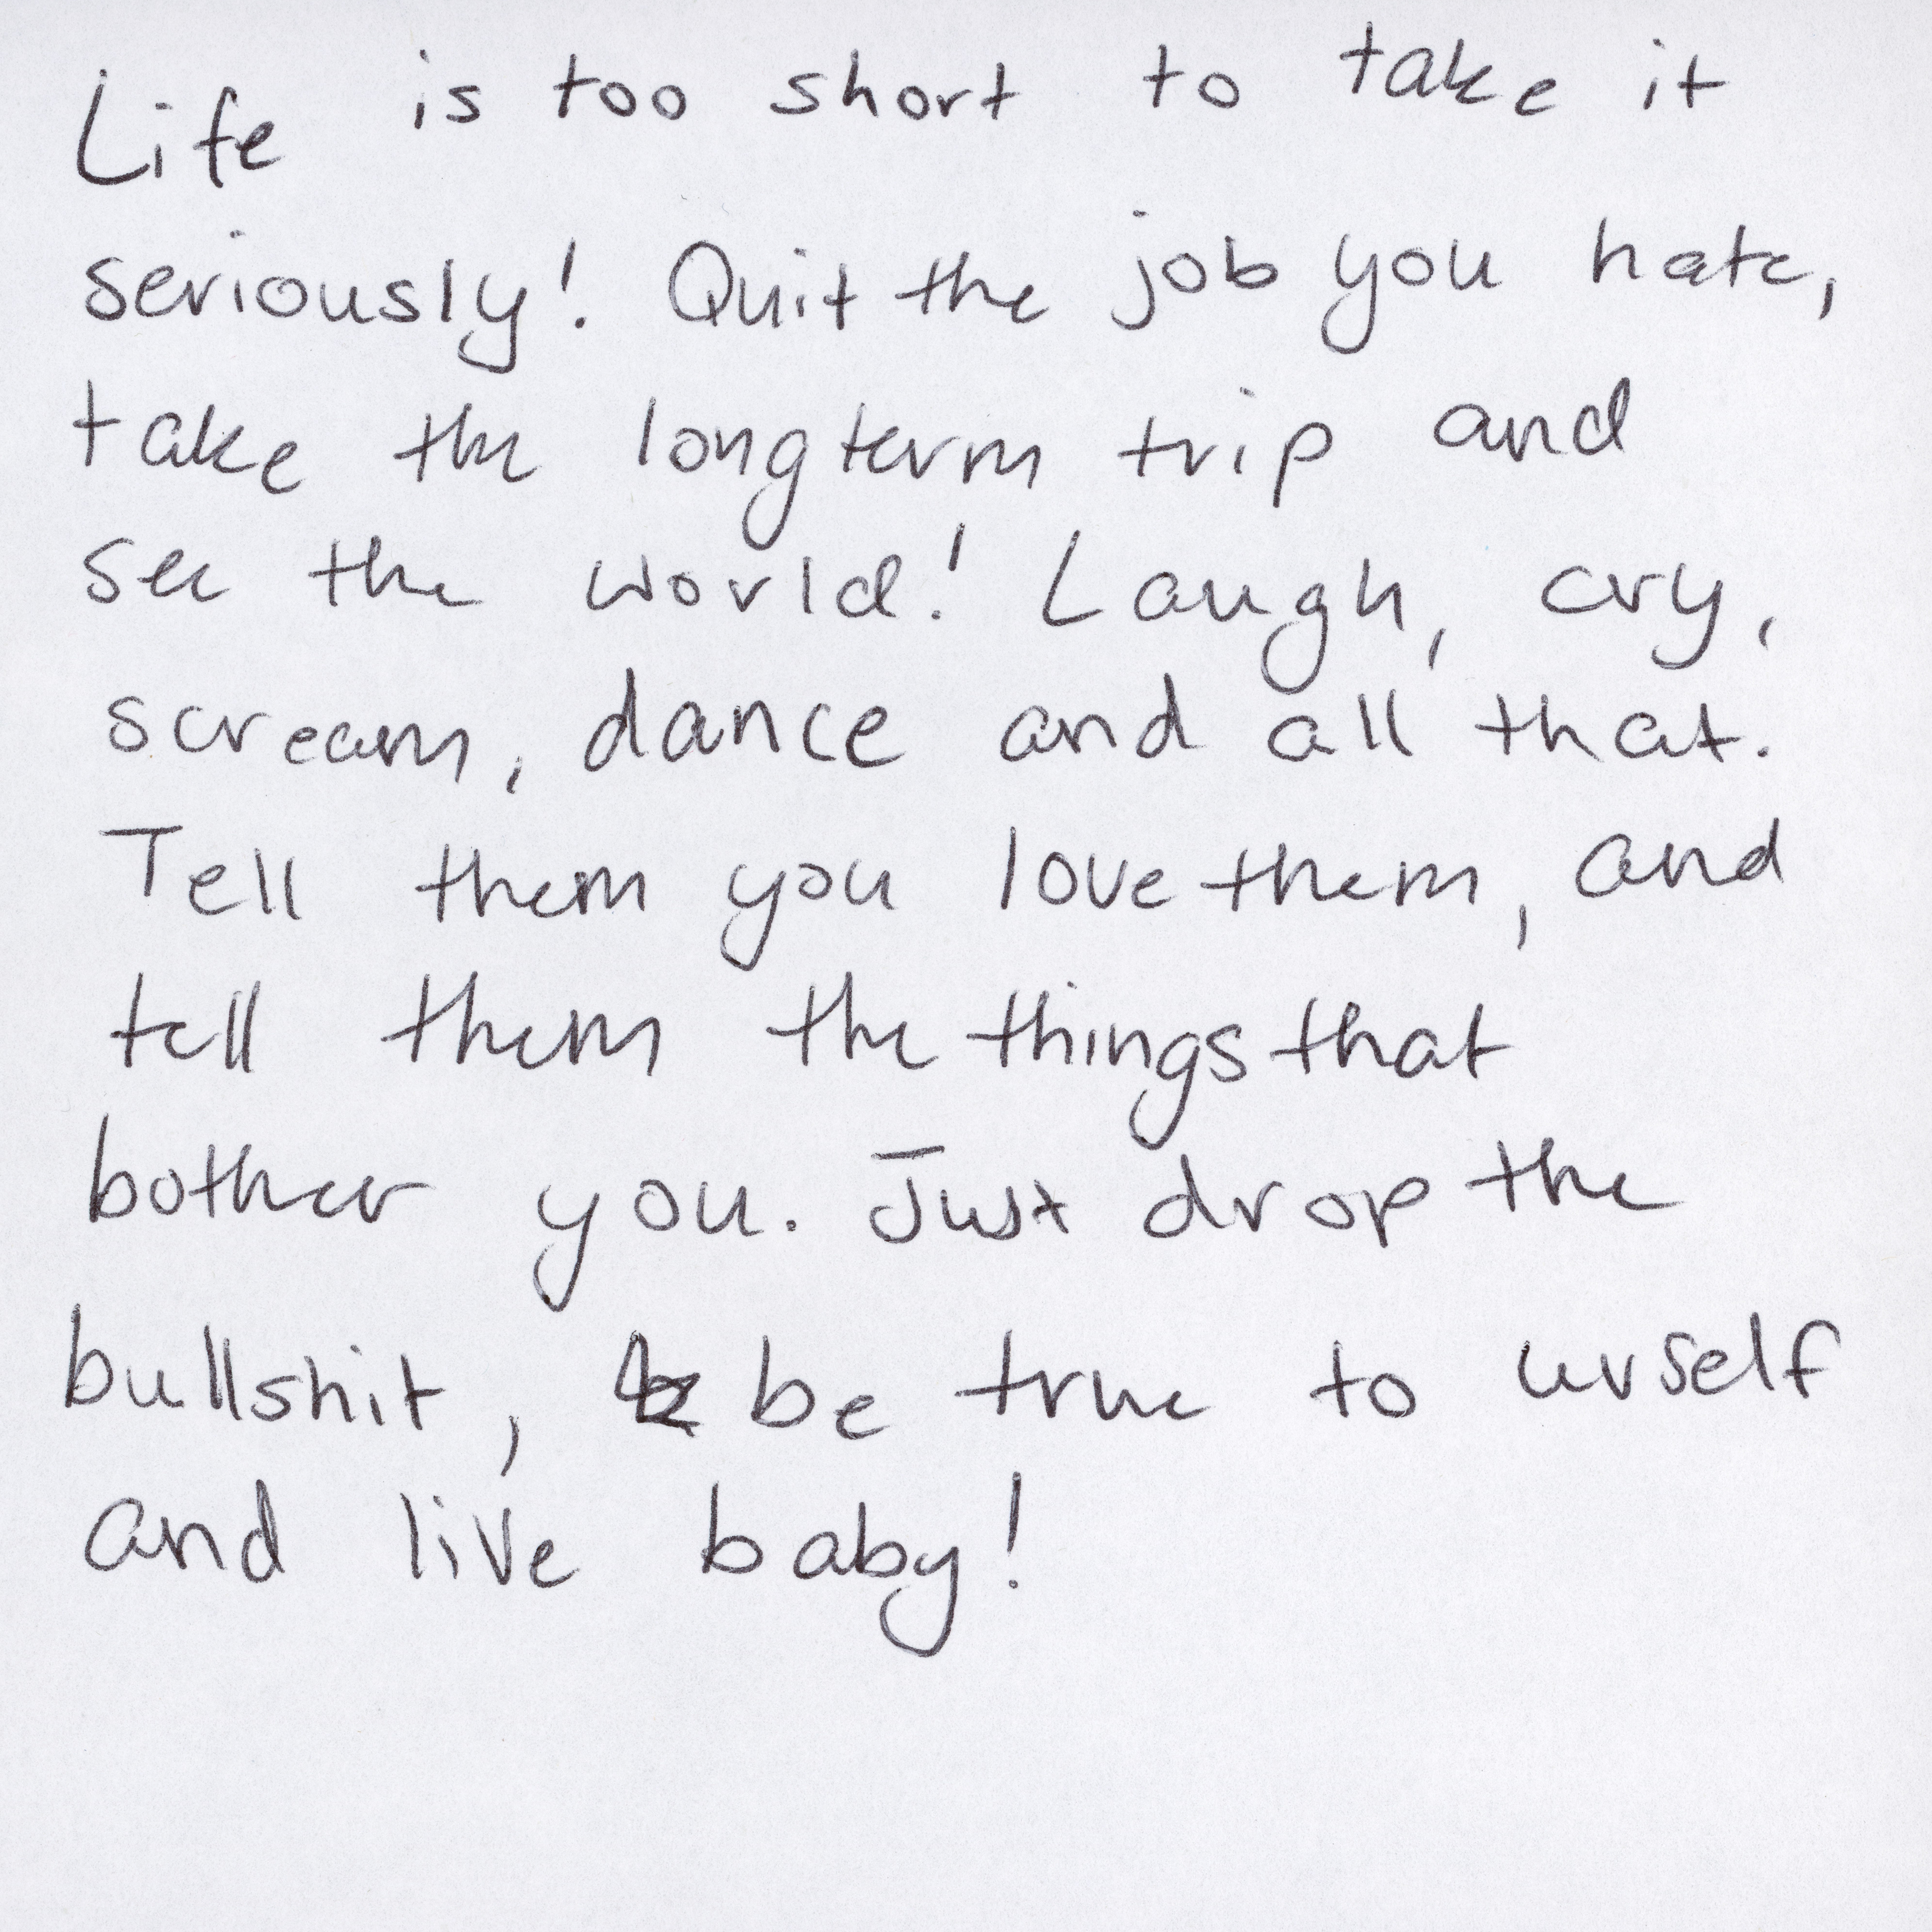 Life is too short to take it
seriously! Quit the job you hate,
take the longterm trip and
see the world! Laugh, cry,
scream, dance and all that.
Tell them you love them, and
tell them the things that
bother you. Just drop the
bullshit, be true to urself
and live baby!